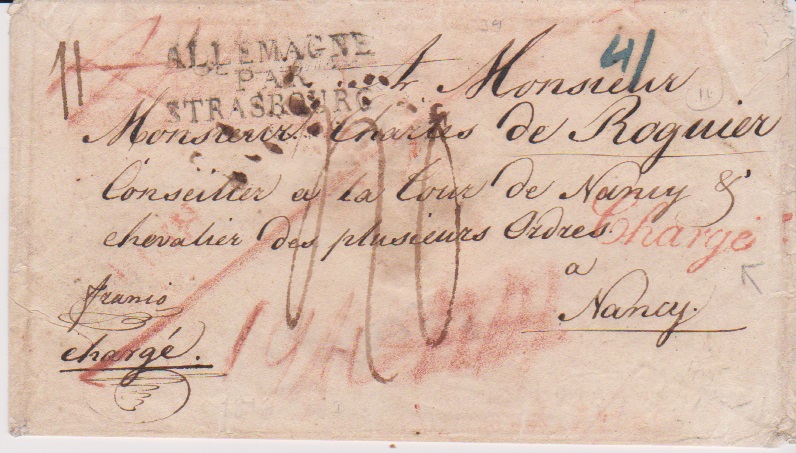 39
11
ALLEMAGNE
PAR
STRASBOURG
41
A Monsieur
Monsieur Charles de Roguier
Conseiller a la Cour de Nancy &
chevalier des plusieurs Ordres.
Chargé
a
Nancy.
franco
chargé.